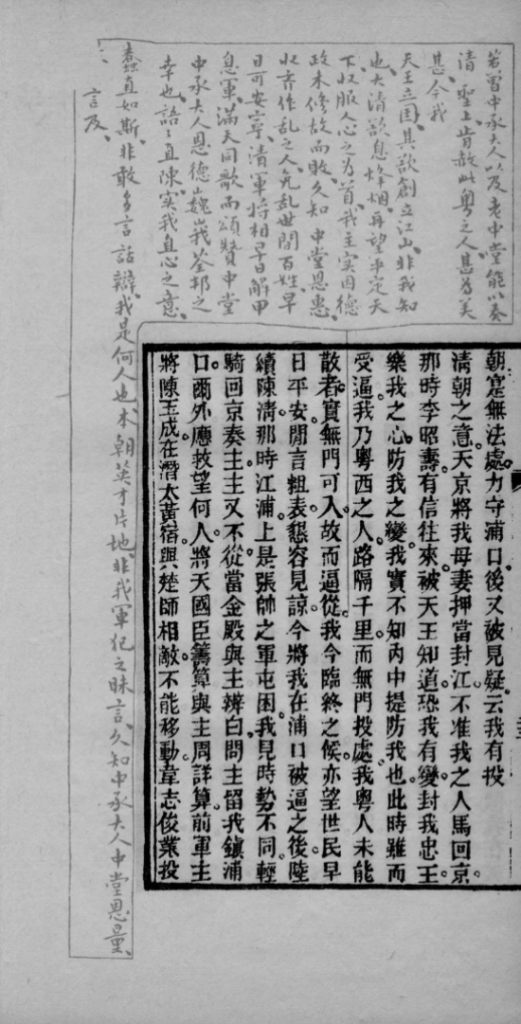 若曾中承大人以及老中堂能以奏
清聖上肯赦此粵之人甚為美
甚今我
天王立国其欲創立江山、非我知
也、大清欲息烽烟、再望平定天
下收服人心之為首、我主實因德
政未修故而敗、久知中堂恩惠
收齊作乱之人、免乱世間百姓早
日可安寧、清軍將相早日解甲
息軍、滿天同歌而頌贊中堂
中承大人恩德巍巍、我荃邦之
幸也、語々直陳、實我直心之意、
蠢直如斯、非敢多言話辯、我是何人也、本朝英才片地、非我軍犯之昧言、久知中承大人中堂恩量、
言及、
朝寔無法處。力守浦口後又被見疑云我有投
清朝之意。天京將我母妻押當封江不准我之人馬回京。
那時李昭壽有信往來。被天王知道恐我有變封我忠王
樂我之心防我之變。我實不知內中提防我也。此時雖而
受逼。我乃粵西之人。路隔千里。而無門投處。我粵人未能
散者。實無門可入。故而逼從。我今臨終之候。亦望世民早
日平安。閒言粗表。懇容見諒。今將我在浦口被逼之後。陸
續陳清。那時江浦上是張帥之軍屯困。我見時勢不同。輕
騎回京奏主。主又不從。當金殿與主辨白。問主留我鎮浦
口。爾外應救望何人。將天國臣籌算與主周詳算。前軍主
將陳玉成在潛太黃宿。與楚師相敵。不能移動。韋志俊業投